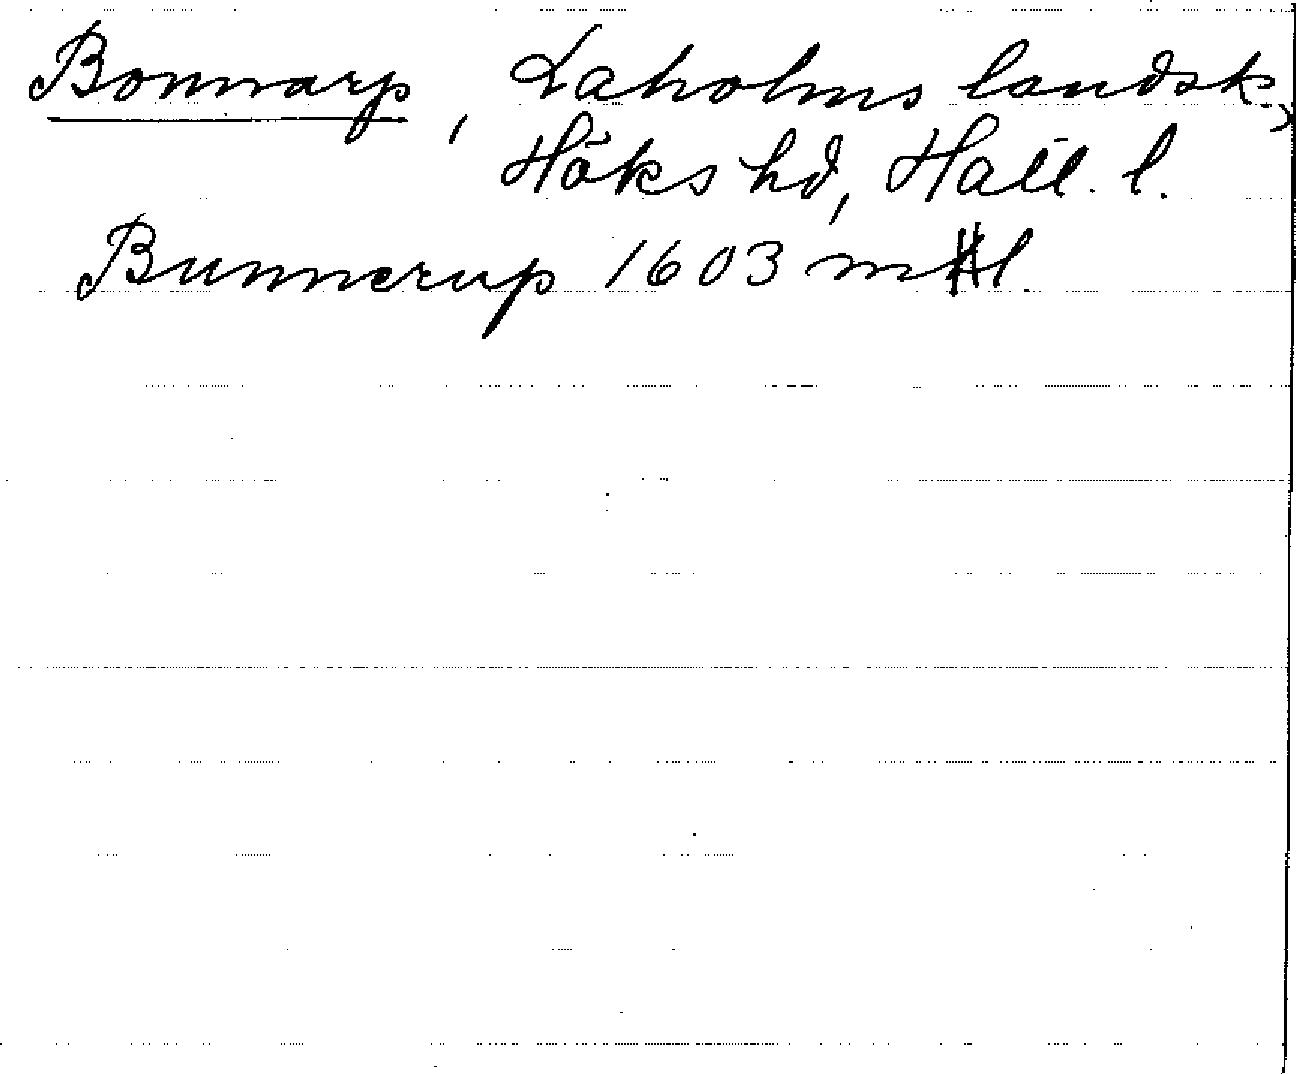 Bonnarp, Laholms landsk,
Höks hd, Hall. l.
Bunnerup 1603 mHl